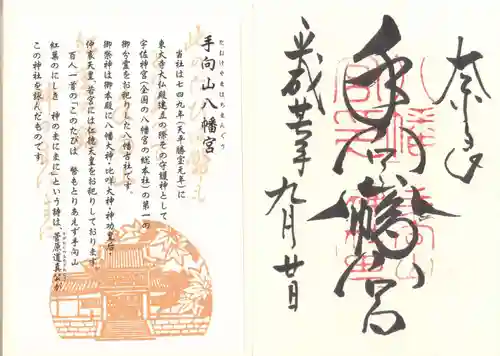 奈良
手向山八幡宮
平成廿年
九月廿日
たむけやまはちまんぐう
手向山八幡宮
当社は七四九年(天平勝宝元年)に
東大寺大仏殿建立の際その守護神として
宇佐神宮(全国の八幡宮の総本社)の第一の
御分霊をお祀りした八幡古社です。
御祭神は御本殿に八幡大神・比咩大神・神功皇后・
仲哀天皇、若宮には仁徳天皇をお祀りしております。
百人一首の「このたびは 幣もとりあえず手向山
紅葉のにしき 神のまにまに」という詩は、菅原道真公が
この神社を詠んだものです。